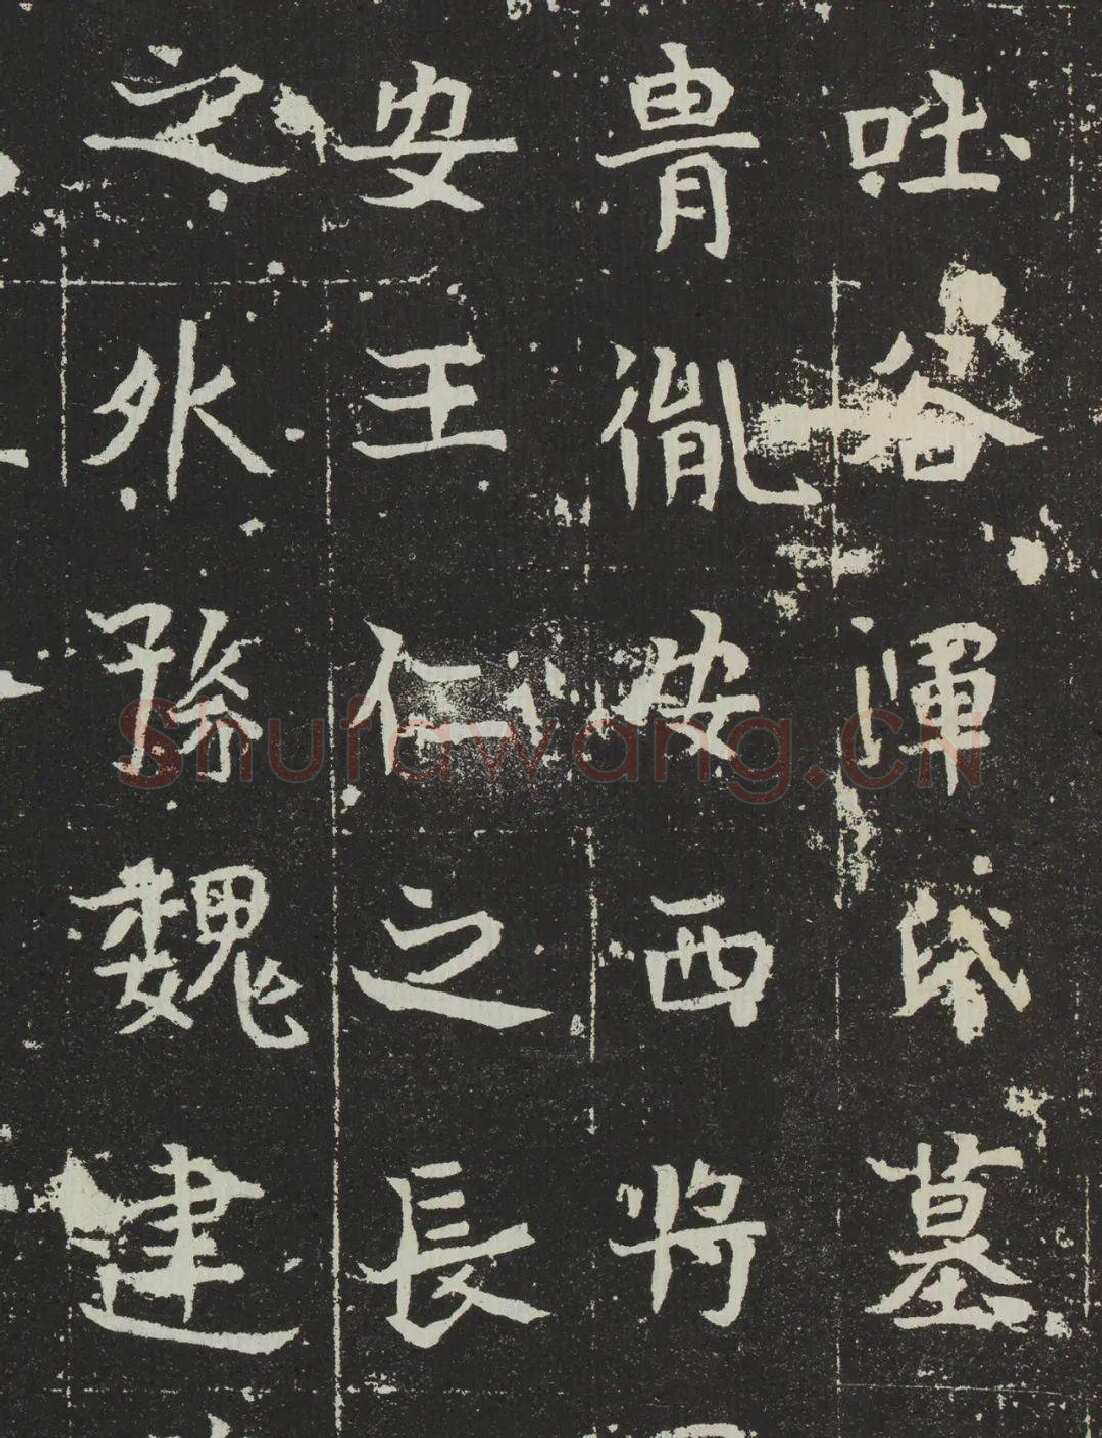 吐谷渾氏墓
胄胤安西將
安王仁之長
之外孫魏建
Shufawang.CN